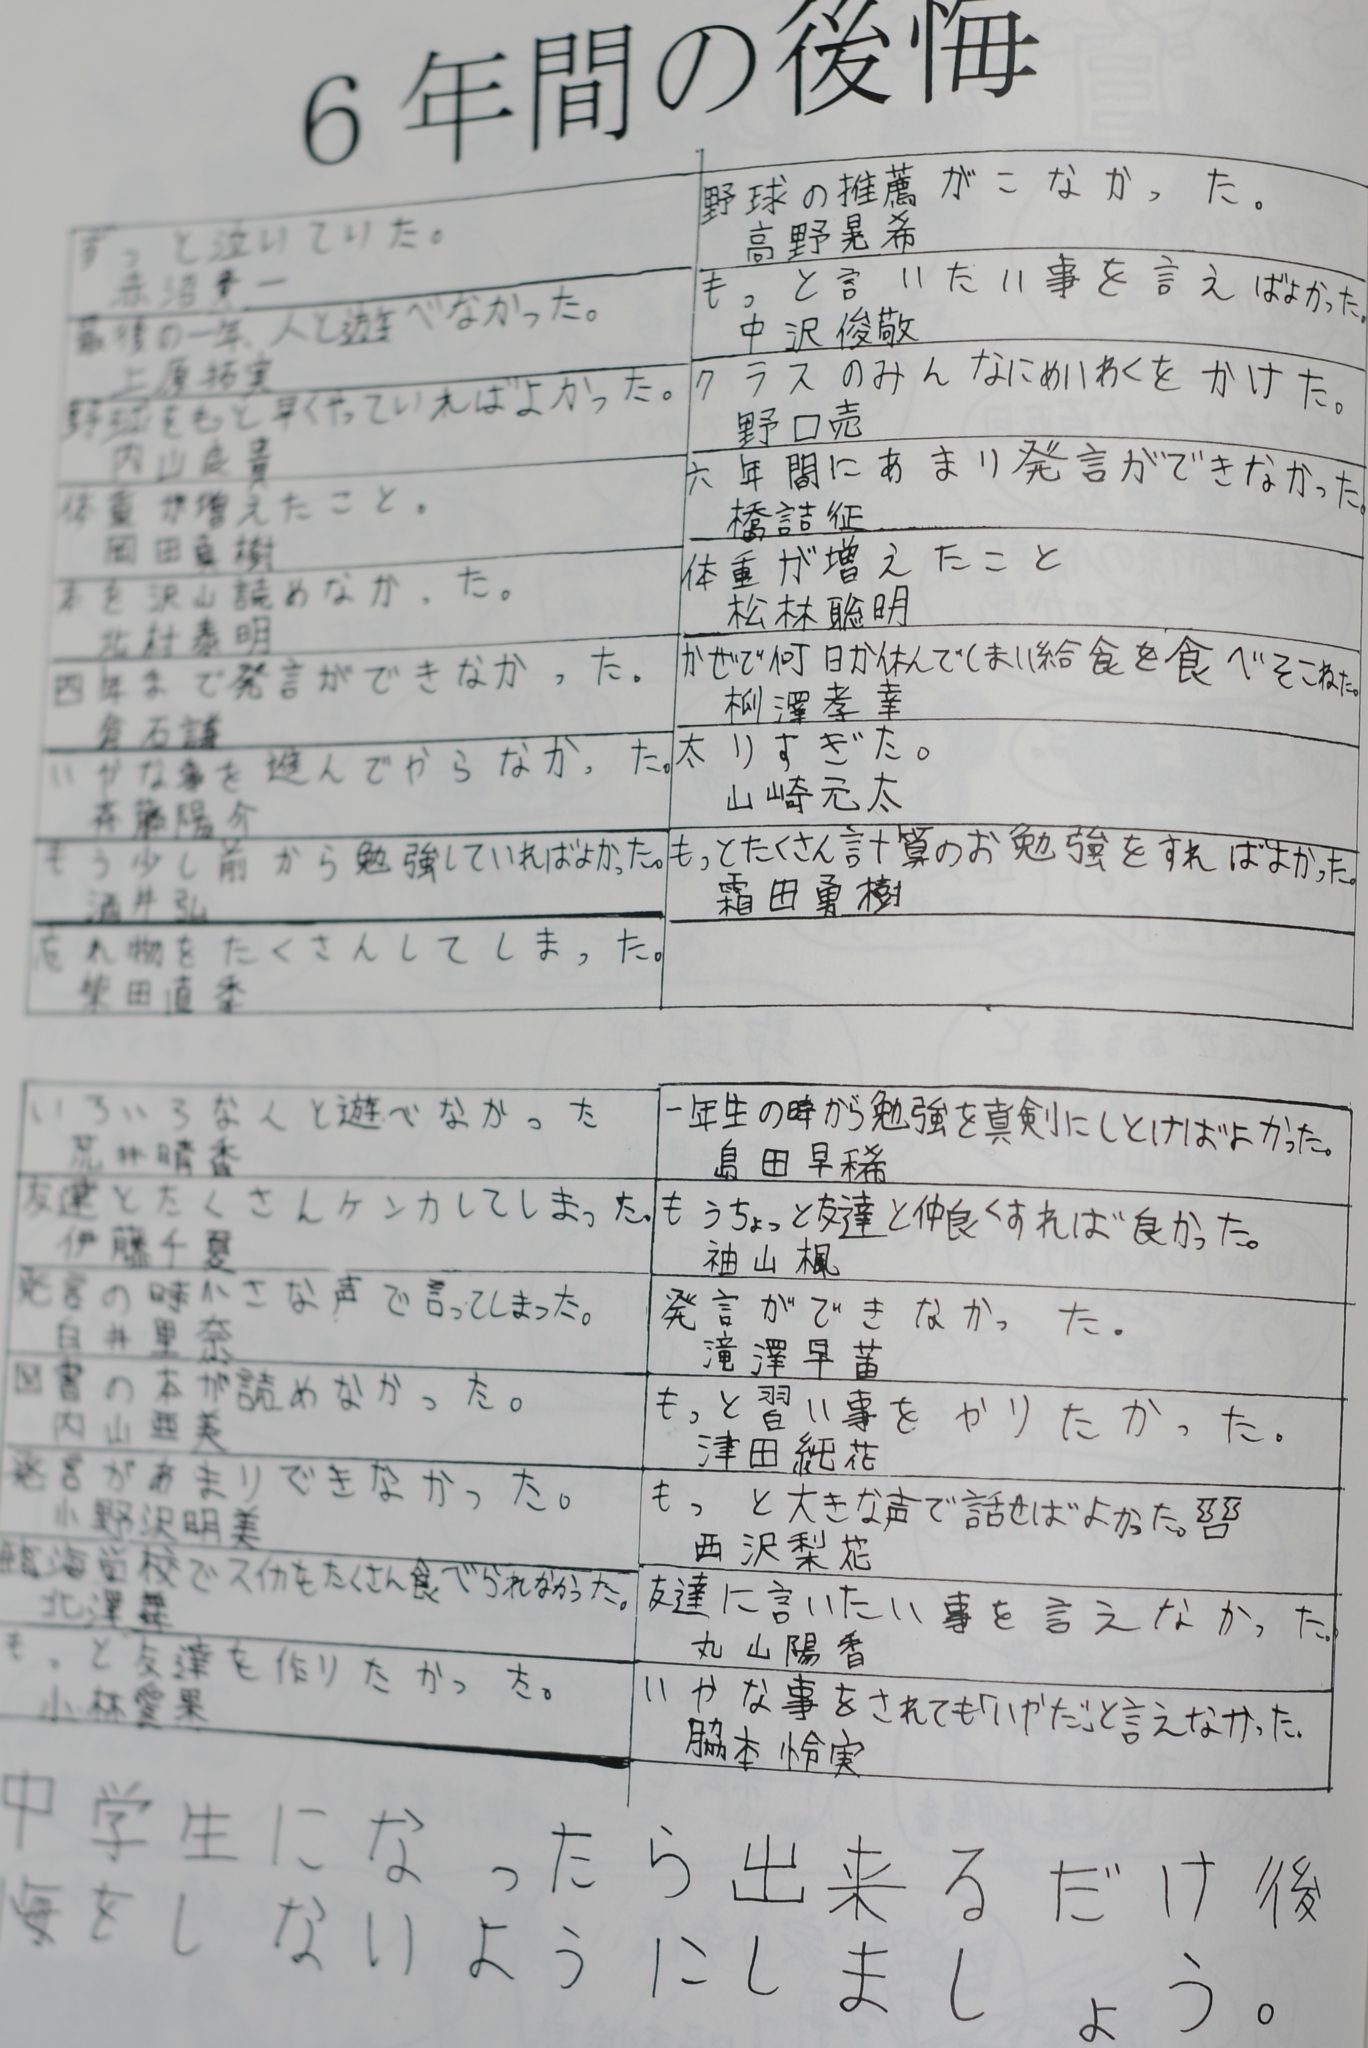 6年間の後悔
ずっと泣いていた。
赤沼
最後の一年、人と遊べなかった。
上原拓実
野球をもっと早くやっていればよかった。
内山良貴
体重が増えたこと。
岡田直樹
本を沢山読めなかった。
北村泰明
四年まで発言ができなかった。
倉石謙
いやな事を進んでやらなかった。
斉藤陽介
もう少し前から勉強していればよかった。
酒井弘
忘れ物をたくさんしてしまった。
柴田直季
野球の推薦がこなかった。
高野晃希
もっと言いたい事を言えばよかった。
中沢俊敬
クラスのみんなにめいわくをかけた。
野口売
六年間にあまり発言ができなかった。
橋詰征
体重が増えたこと
松林聡明
かぜで何日か休んでしまい給食を食べそこねた。
柳澤孝幸
太りすぎた。
山崎元太
もっとたくさん計算のお勉強をすればよかった。
霜田勇樹
いろいろな人と遊べなかった
荒井晴香
友達とたくさんケンカしてしまった。
伊藤千夏
発言の時小さな声で言ってしまった。
臼井里奈
図書の本が読めなかった。
内山亜美
発言があまりできなかった。
小野沢明美
臨海学校でスイカもたくさん食べられなかった。
北澤舞
もっと友達を作りたかった。
小林愛果
一年生の時から勉強を真剣にしとけばよかった。
島田早稀
もうちょっと友達と仲良くすれば良かった。
袖山楓
発言ができなかった。
滝澤早苗
もっと習い事をやりたかった。
津田純花
もっと大きな声で話せばよかった。
西沢梨花
友達に言いたい事を言えなかった。
丸山陽香
いやな事をされても「いやだ」と言えなかった。
脇本怜実
中学生になったら出来るだけ後
悔をしないようにしましょう。